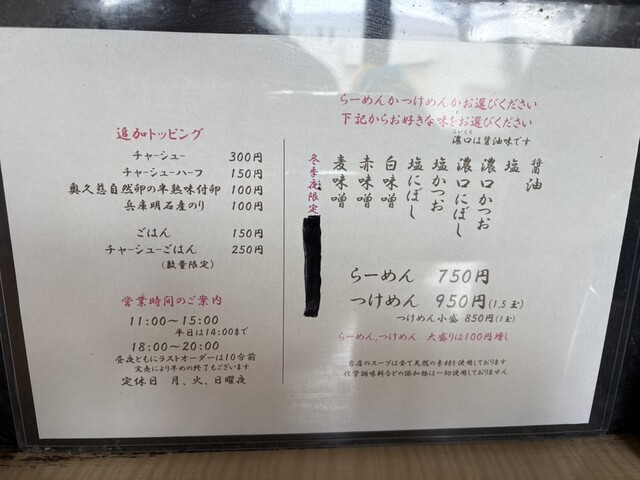 らーめんかつけめんかお選びください
下記からお好きな味をお選びください
こいくち
濃口は醤油味です
醤油
塩
濃口かつお
濃口にぼし
塩かつお
塩にぼし
白味噌
赤味噌
麦味噌
冬季夜限定
らーめん 750円
つけめん 950円(1.5玉)
つけめん小盛 850円(1玉)
らーめん,つけめん 大盛りは100円増し
当店のスープは全て天然の素材を使用しております
化学調味料などの添加物は一切使用しておりません
追加トッピング
チャーシュー 300円
チャーシューハーフ 150円
奥久慈自然卵の半熟味付卵 100円
兵庫明石産のり 100円
ごはん 150円
チャーシューごはん 250円
(数量限定)
営業時間のご案内
11:00〜15:00
平日は14:00まで
18:00〜20:00
昼夜ともにラストオーダーは10分前
完売により早めの終了もございます
定休日 月、火、日曜夜